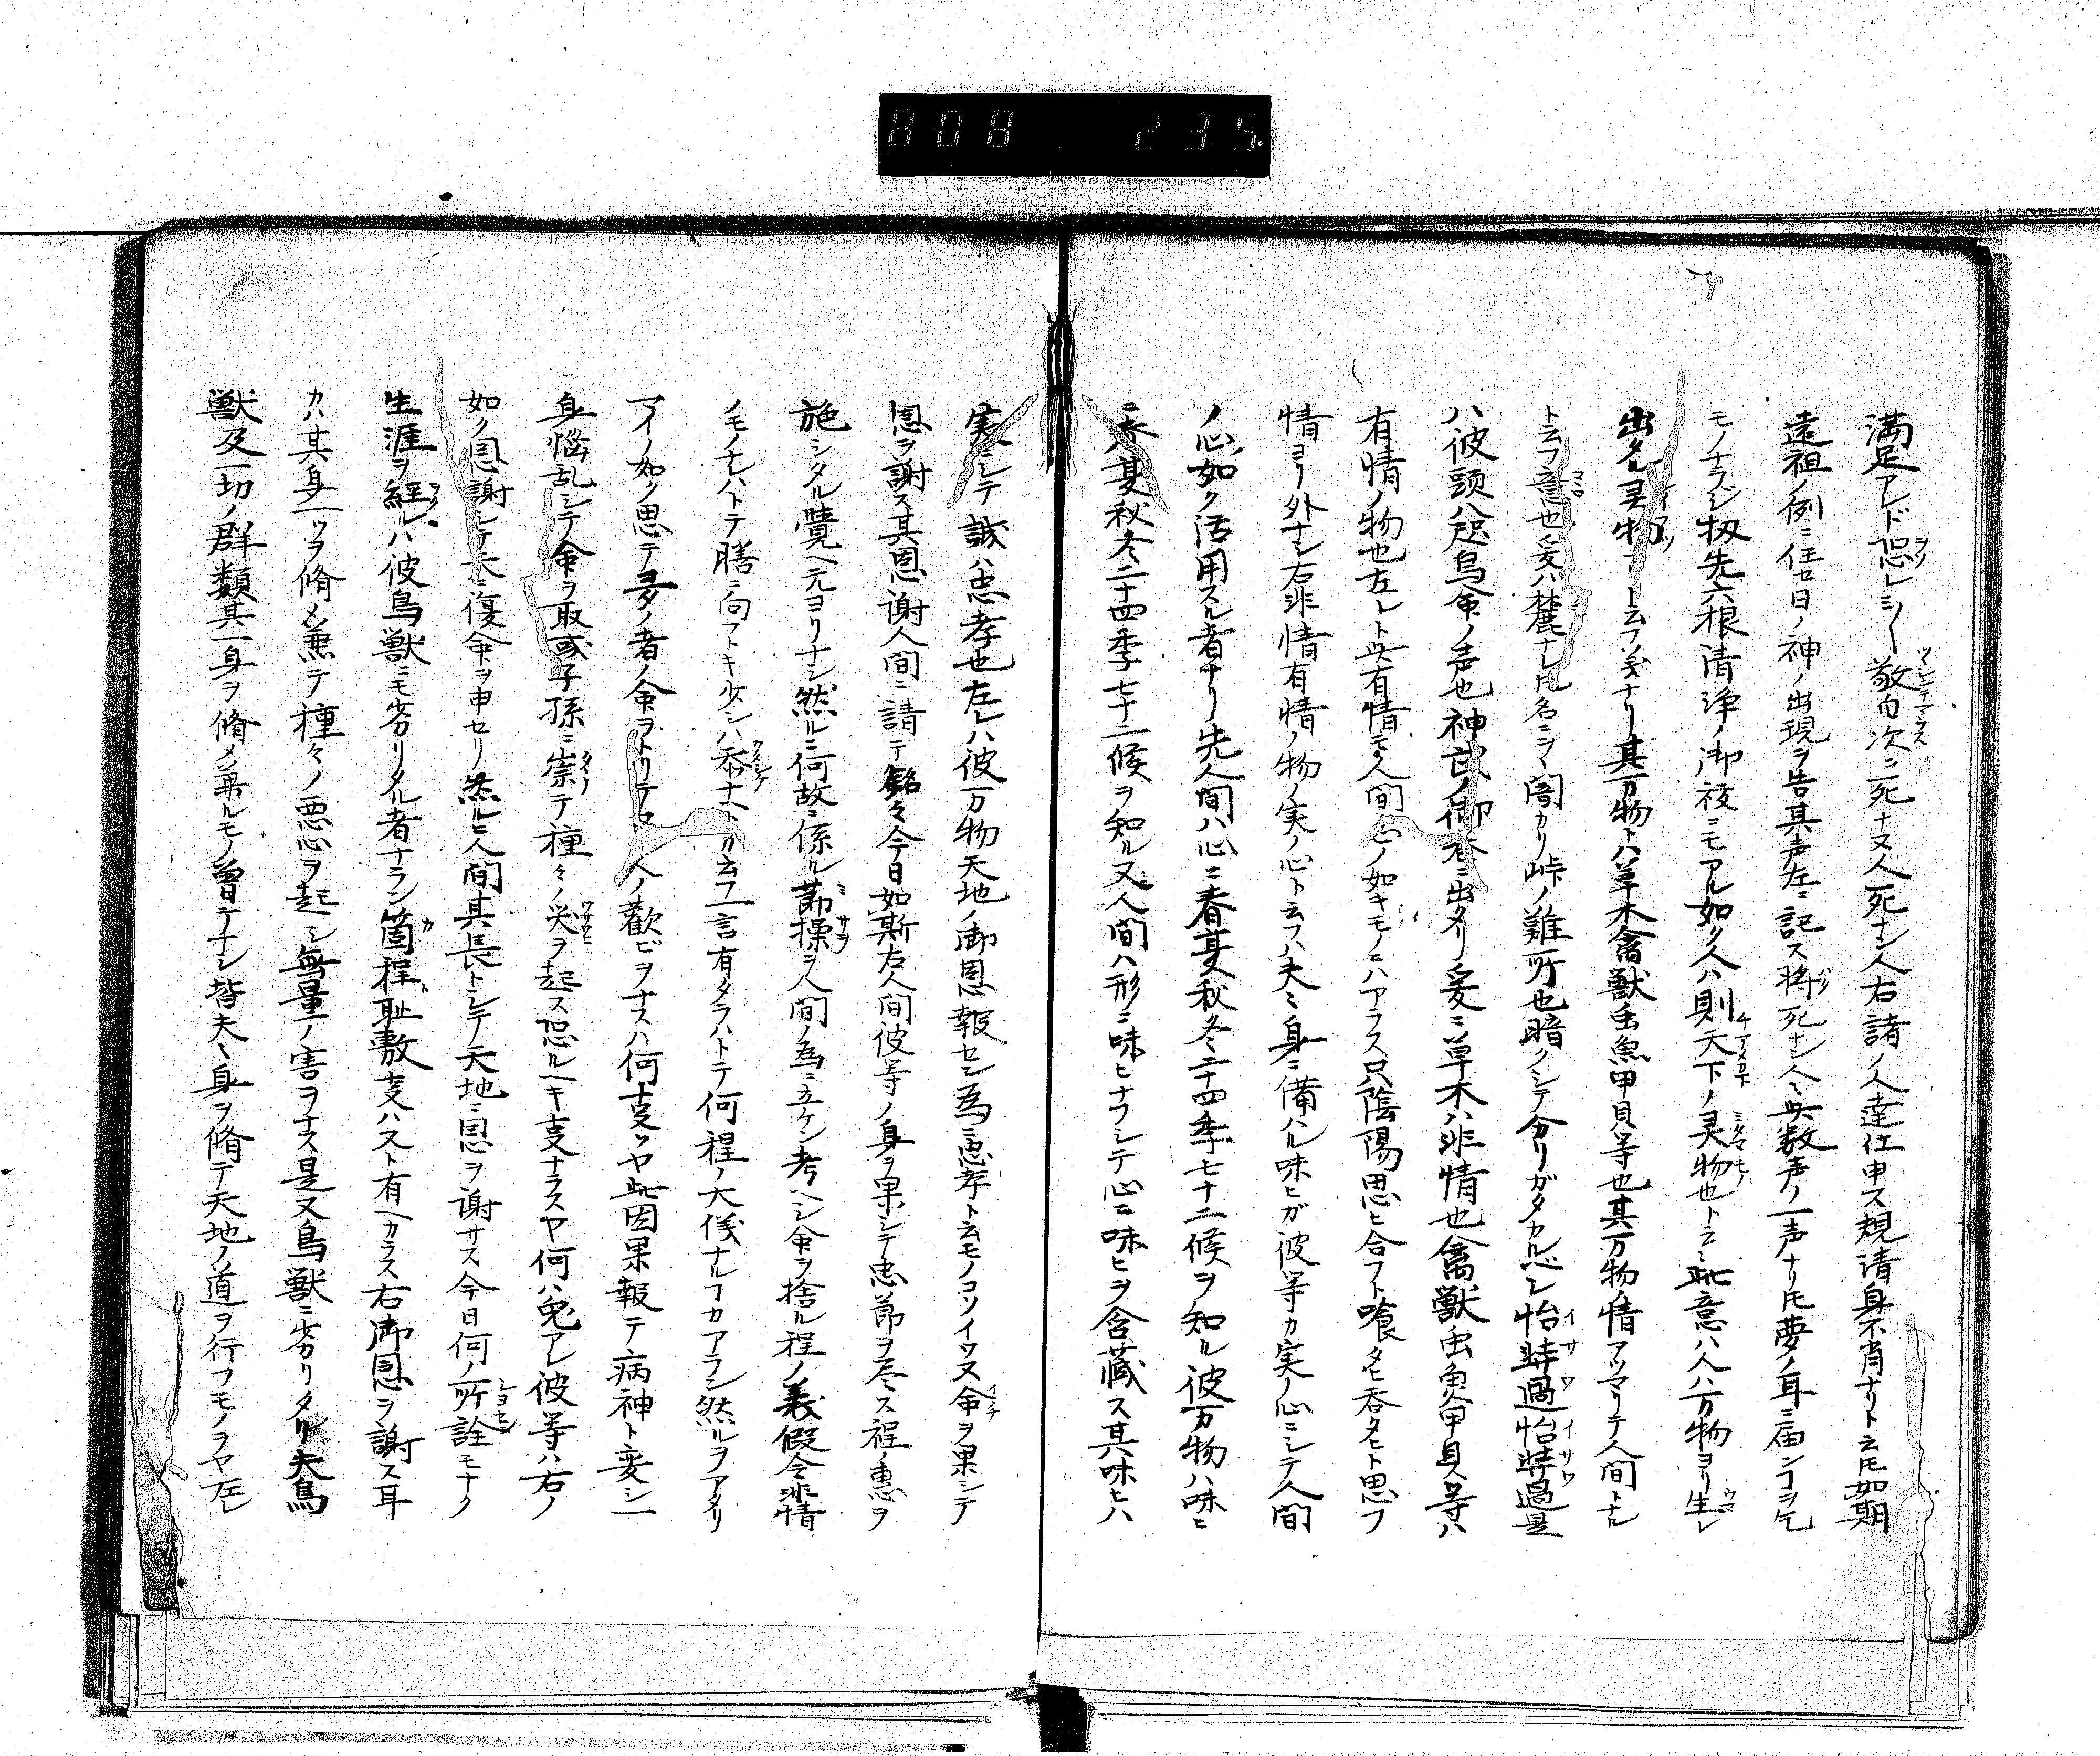 808 235.
満足アレド恐レミ〳〵敬白次ニ死ナヌ人死ナン人右諸ノ人達江申ス規清身不肖ナリト云𪜈如期
遠祖ノ例ニ任セ日ノ神ノ出現ヲ告其声左ニ記ス将死ナン人ニ此数声ノ一声ナリ𪜈夢ノ耳ニ届ンヿヲ乞
モノナラジ扨先六根清浄ノ御祓ニモアル如ク人ハ則天下ノ灵物也ト云ニ此意ハ人ハ万物ヨリ生レ
出タル灵物ヿト云フ义ナリ其万物トハ草木禽獣虫魚甲貝等也其万物ノ情アツマリテ人間トナル
ト云フ意也爰ハ麓ナレ𪜈名ニヲヽ闇カリ峠ノ難所也暗クシテ分リガタカル心シ怡時過怡時過是
ハ彼頭八咫烏命ノ声也神武ノ御巻ニ出タリ爰ニ草木ハ非情也禽獣虫魚甲貝等ハ
有情ノ物也左レト此有情モ人間心ノ如キモノニハアラス只陰陽思ヒ合フト喰タヒ呑タヒト思フ
情ヨリ外ナシ右非情有情ノ物ノ実ノ心ト云フハ夫ミ身ニ備ハル味ヒガ彼等カ実ノ心ニシテ人間
ノ心如ク活用スル者ナリ先人間ハ心ニ春夏秋冬二十四季七十二候ヲ知ル彼万物ハ味ヒ
ニ春夏秋冬二十四季七十二候ヲ知ル又人間ハ形ニ味ヒナフシテ心ニ味ヒヲ含蔵ス其味ヒハ
実ニシテ誠ハ忠孝也左レハ彼万物天地ノ御恩報セン為ニ忠孝ト云モノコソイワヌ命ヲ果シテ
恩ヲ謝ス其恩謝人間ニ請テ銘々今日如斯右人間彼等ノ身ヲ果シテ忠節ヲ尽ス程ノ恵ヲ
施シタル覚ヘ元ヨリナシ然ルニ何故ニ係ル節操ヲ人間ノ為ニ立ケン考ヘシ命ヲ捨ル程ノ義仮令非情
ノモノナレハトテ膳ニ向フトキ少シハ忝ナヒトカ云フ一言有タラハトテ何程ノ大儀ナルヿカアラン然ルヲアタリ
マイノ如ク思テ多ノ者ノ命ヲトリテ己人ノ歓ビヲナスハ何事ソヤ此因果報テ病神ト変シ一
身悩乱シテ命ヲ取或子孫ニ祟テ種々ノ災ヲ起ス恐ルヘキ事ナラスヤ何ハ兎アレ彼等ハ右ノ
如ク恩謝シテ天ニ復命ヲ申セリ然ルニ人間其長トシテ天地ニ恩ヲ謝サス今日何ノ所詮モナク
生涯ヲ経ルハ彼鳥獣ニモ劣リタル者ナラン箇程耻敷事ハスト有ヘカラス右御恩ヲ謝ス耳
カハ其身一ツヲ脩メ兼テ種々ノ悪心ヲ起シ無量ノ害ヲナス是又鳥獣ニ劣リタリ夫鳥
獣及一切ノ群類其一身ヲ脩メ兼ルモノ曽テナシ皆夫ミ身ヲ脩テ天地ノ道ヲ行フモノヲヤ左レ